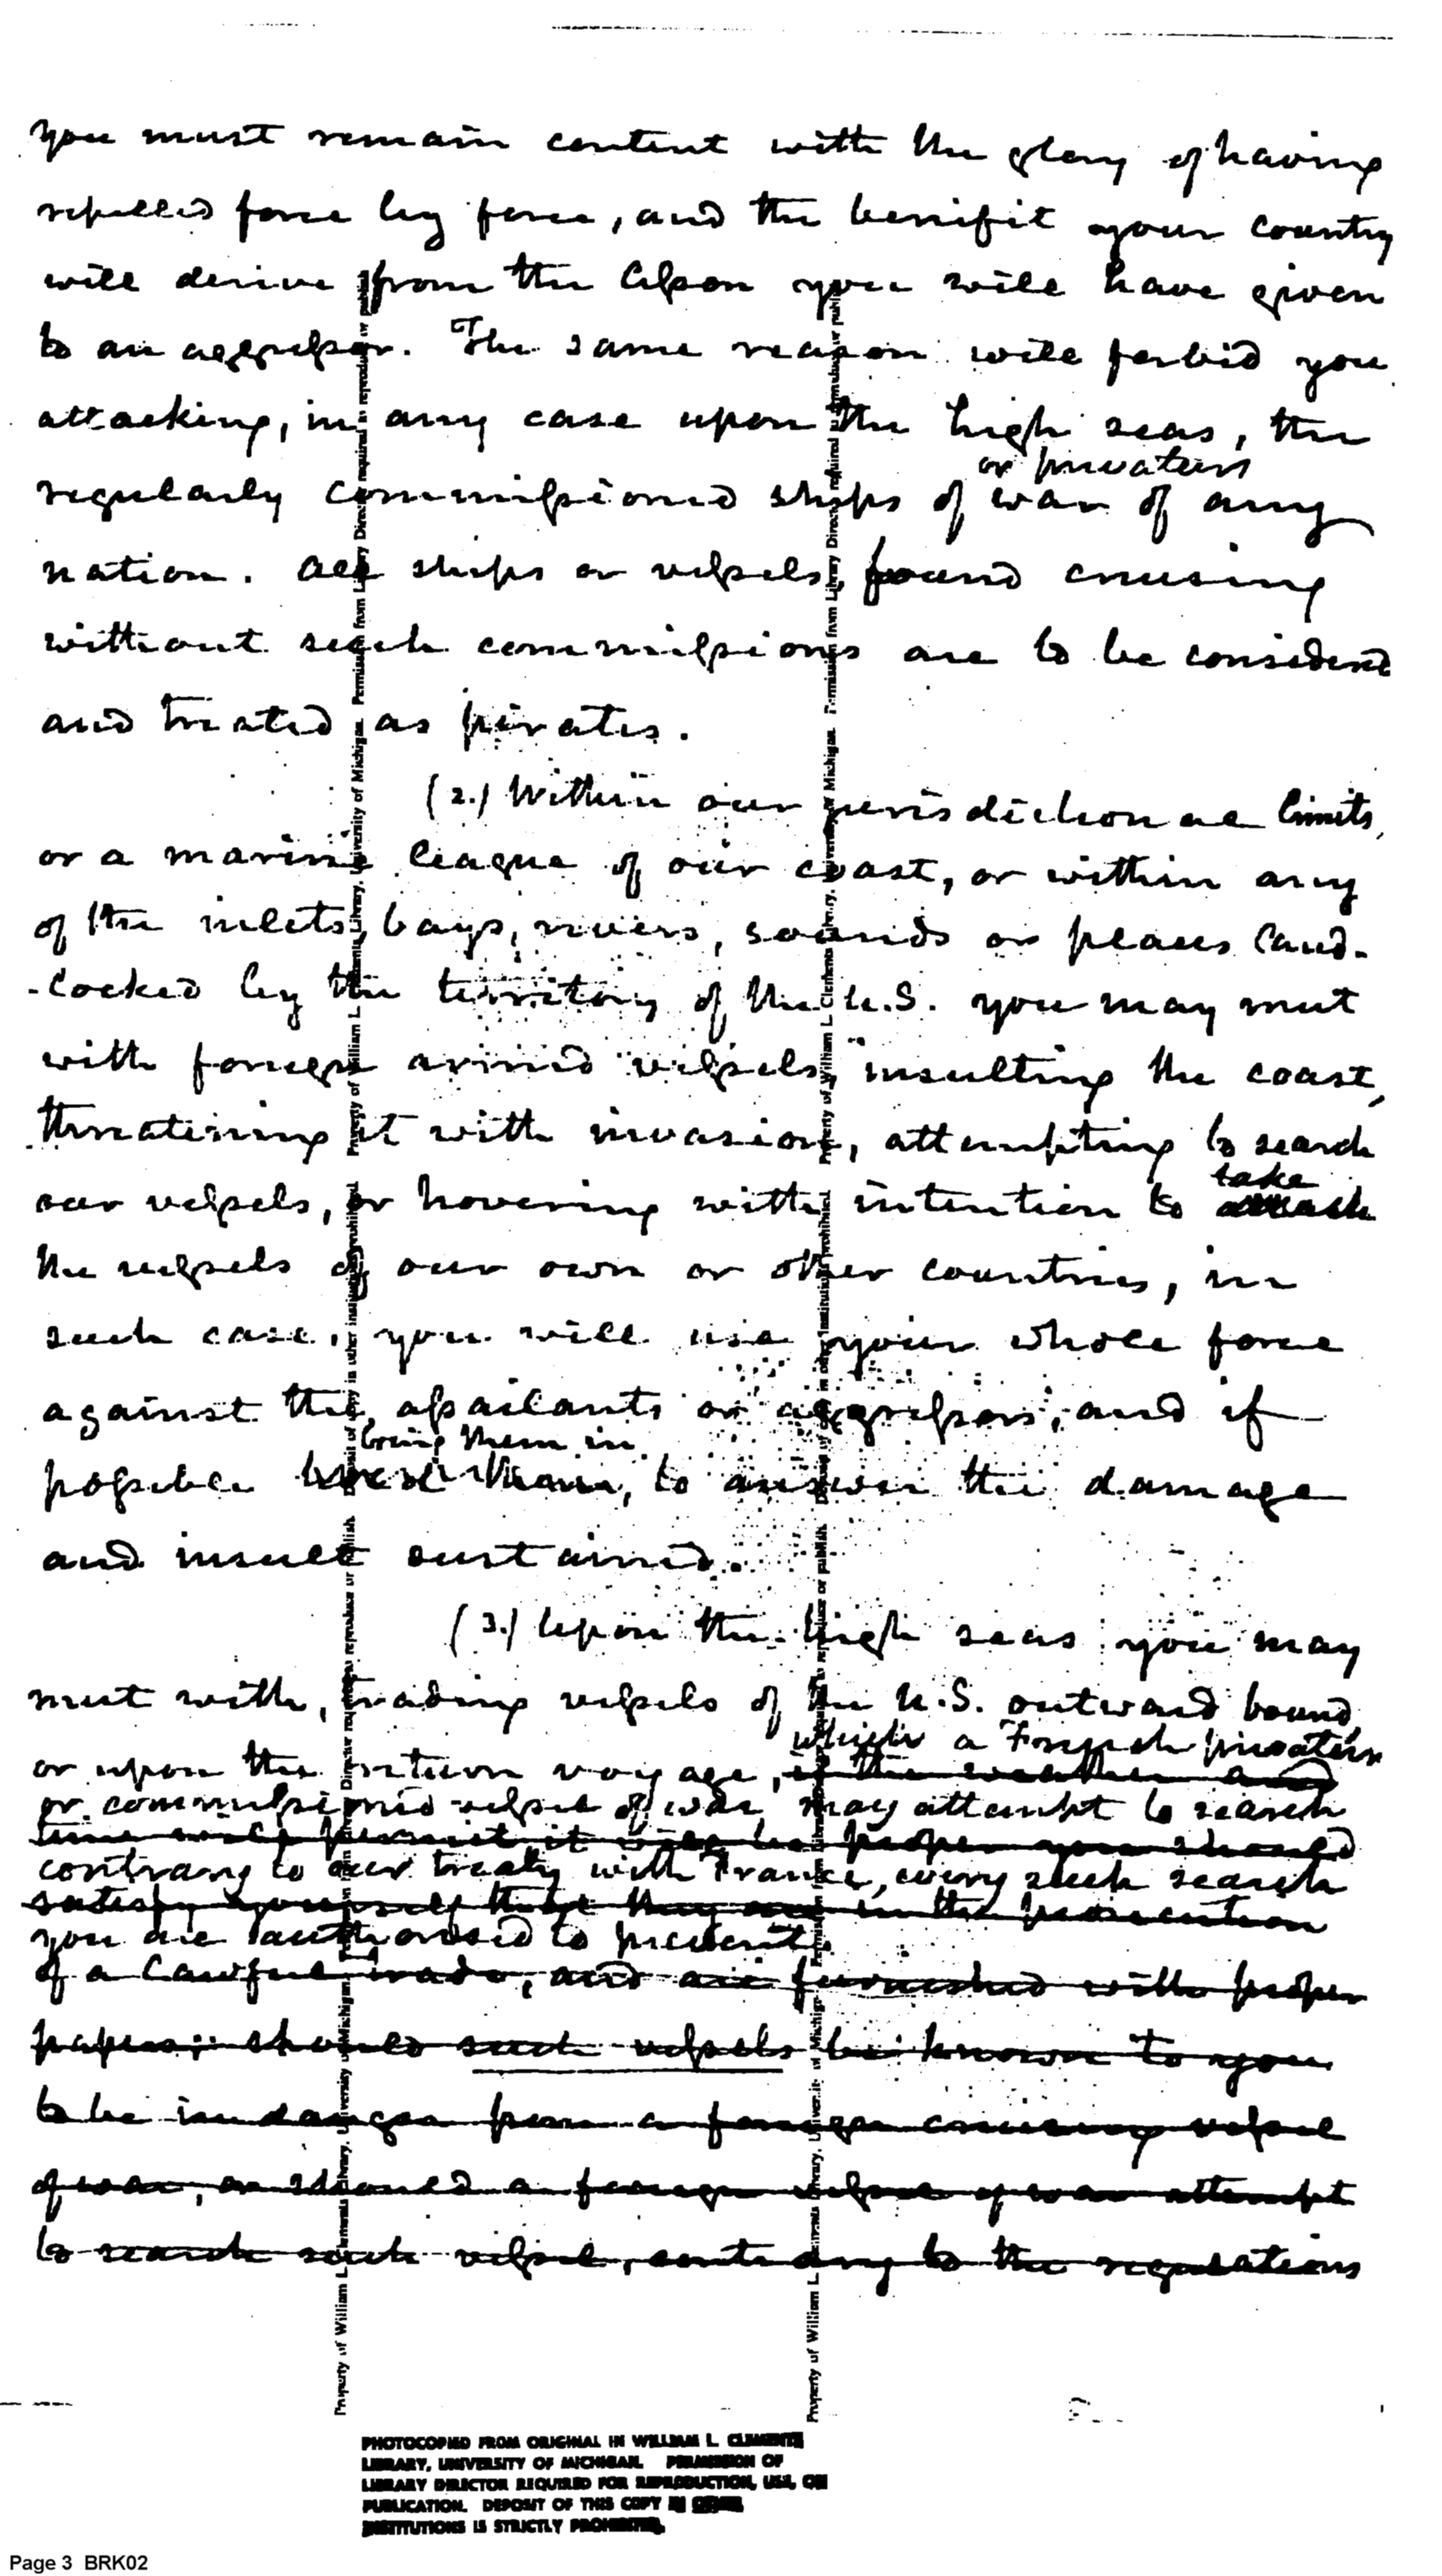 you must remain content with the glory of having
repelled force by force, and the benifit your country
will derive from the lesson you will have given
to an aggressor. The same reason will forbid you
attacking, in any case upon the high seas, the
or privateers
regularly commissioned ships of war of any
nation. All ships or vessels, found cruising
without such commissions are to be considered
and treated as pirates.
(2.) Within our jurisdictional limits,
or a marine league of our coast, or within any
of the inlets, bays, rivers, sounds or places land-
-locked by the territory of the U.S. you may meet
with foreign armed vessels, insulting the coast,
threatening it with invasion, attempting to search
take
our vessels, or hovering with intention to attack
the vessels of our own or other countries, in
such case, you will use your whole force
against the assailants or aggressors, and if
bring them in
possible them, to answer the damage
and insult sustained.
(3.) Upon the high seas you may
meet with, trading vessels of the U.S. outward bound,
which a French privateer
or upon the return voyage, if the weather and
or commissioned vessel of war may attempt to search
time will permit it will be proper you should
contrary to our treaty with France, every such search
satisfy yourself that they are in the prosecution
you are authorised to prevent.
of a lawful trade, and are furnished with proper
papers; should such vessels be known to you
to be in danger from a foreign cruising vessel
of war, or should a foreign vessel of war attempt
to search such vessel, contrary to the regulations
Property of William L. Clements Library, University of Michigan. Permission from Library Director required to reproduce or publish. Deposit of copy in other institutions prohibited.
Property of William L. Clements Library, University of Michigan. Permission from Library Director required to reproduce or publish. Deposit of copy in other institutions prohibited.
PHOTOCOPIED FROM ORIGINAL IN WILLIAM L. CLEMENTS
LIBRARY, UNIVERSITY OF MICHIGAN. PERMISSION OF
LIBRARY DIRECTOR REQUIRED FOR REPRODUCTION, USE, OR
PUBLICATION. DEPOSIT OF THIS COPY IN OTHER
INSTITUTIONS IS STRICTLY PROHIBITED.
Page 3 BRK02